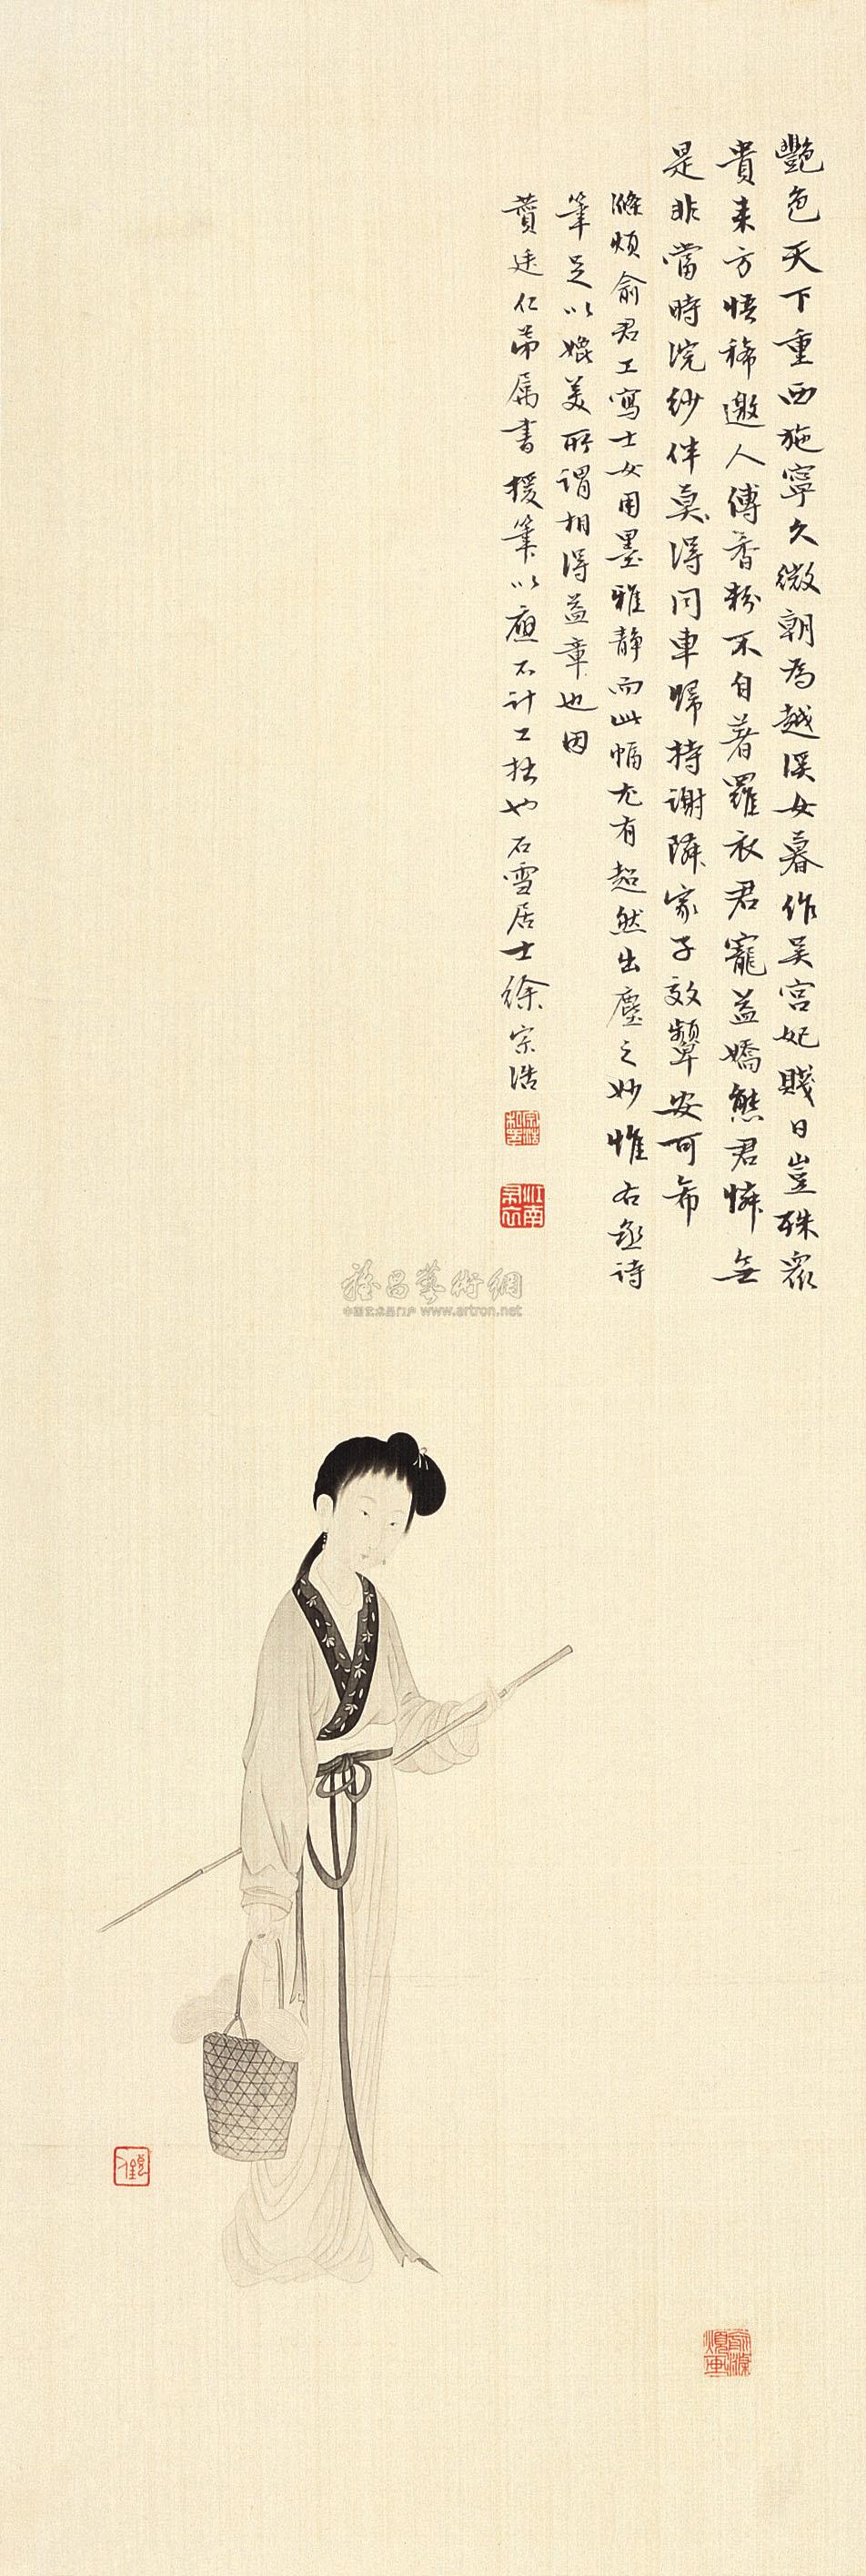 艷色天下重西施寧久微朝為越溪女暮作吳宮妃賤日豈殊眾
貴来方悟稀邀人傅香粉不自著羅衣君寵益嬌態君憐無
是非當時浣紗伴莫得同車歸持謝隣家子效顰安可希
滌煩俞君工寫士女用墨雅静而此幅尤有超然出塵之妙惟右丞詩
筆足以媲美所謂相得益章也因
蕢廷仁弟属書援筆以應不計工拙也石雪居士徐宗浩
江南
雅昌藝術網
中国艺术品门户 www.artron.net